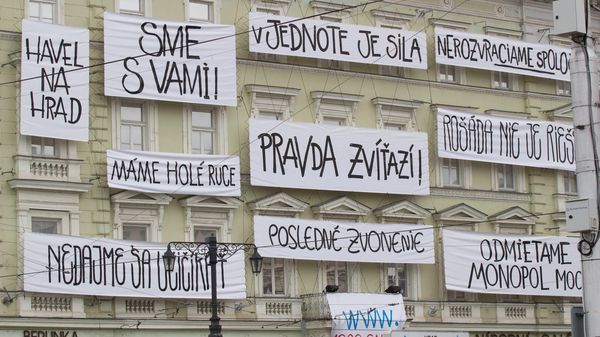 HAVEL
NA
HRAD
SME
S VAMI!
V JEDNOTE JE SILA
NEROZVRACIAME SPOLO
MÁME HOLÉ RUCE
PRAVDA ZVÍŤAZÍ!
ROŠÁDA NIE JE RIEŠ
NEDAJME SA
POSLEDNÉ ZVONENIE
ODMIETAME
MONOPOL MOC
WWW.